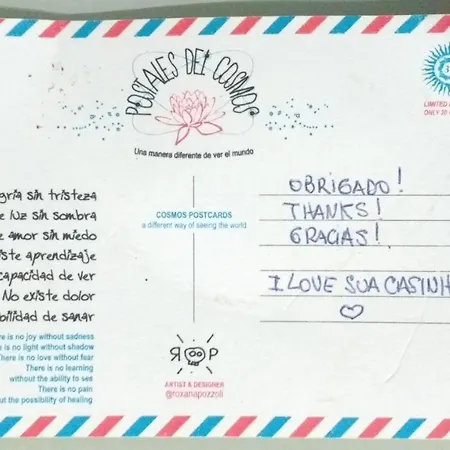 POSTALES DEL COSMOS
Una manera diferente de ver el mundo
LIMITED
ONLY 20
gría sin tristeza
luz sin sombra
amor sin miedo
iste aprendizaje
capacidad de ver
No existe dolor
bilidad de sanar
e is no joy without sadness
e is no light without shadow
There is no love without fear
There is no learning
without the ability to see
There is no pain
ut the possibility of healing
COSMOS POSTCARDS
a different way of seeing the world
ARTIST & DESIGNER
@roxanapozzoli
OBRIGADO!
THANKS!
GRACIAS!
I LOVE SUA CASINH